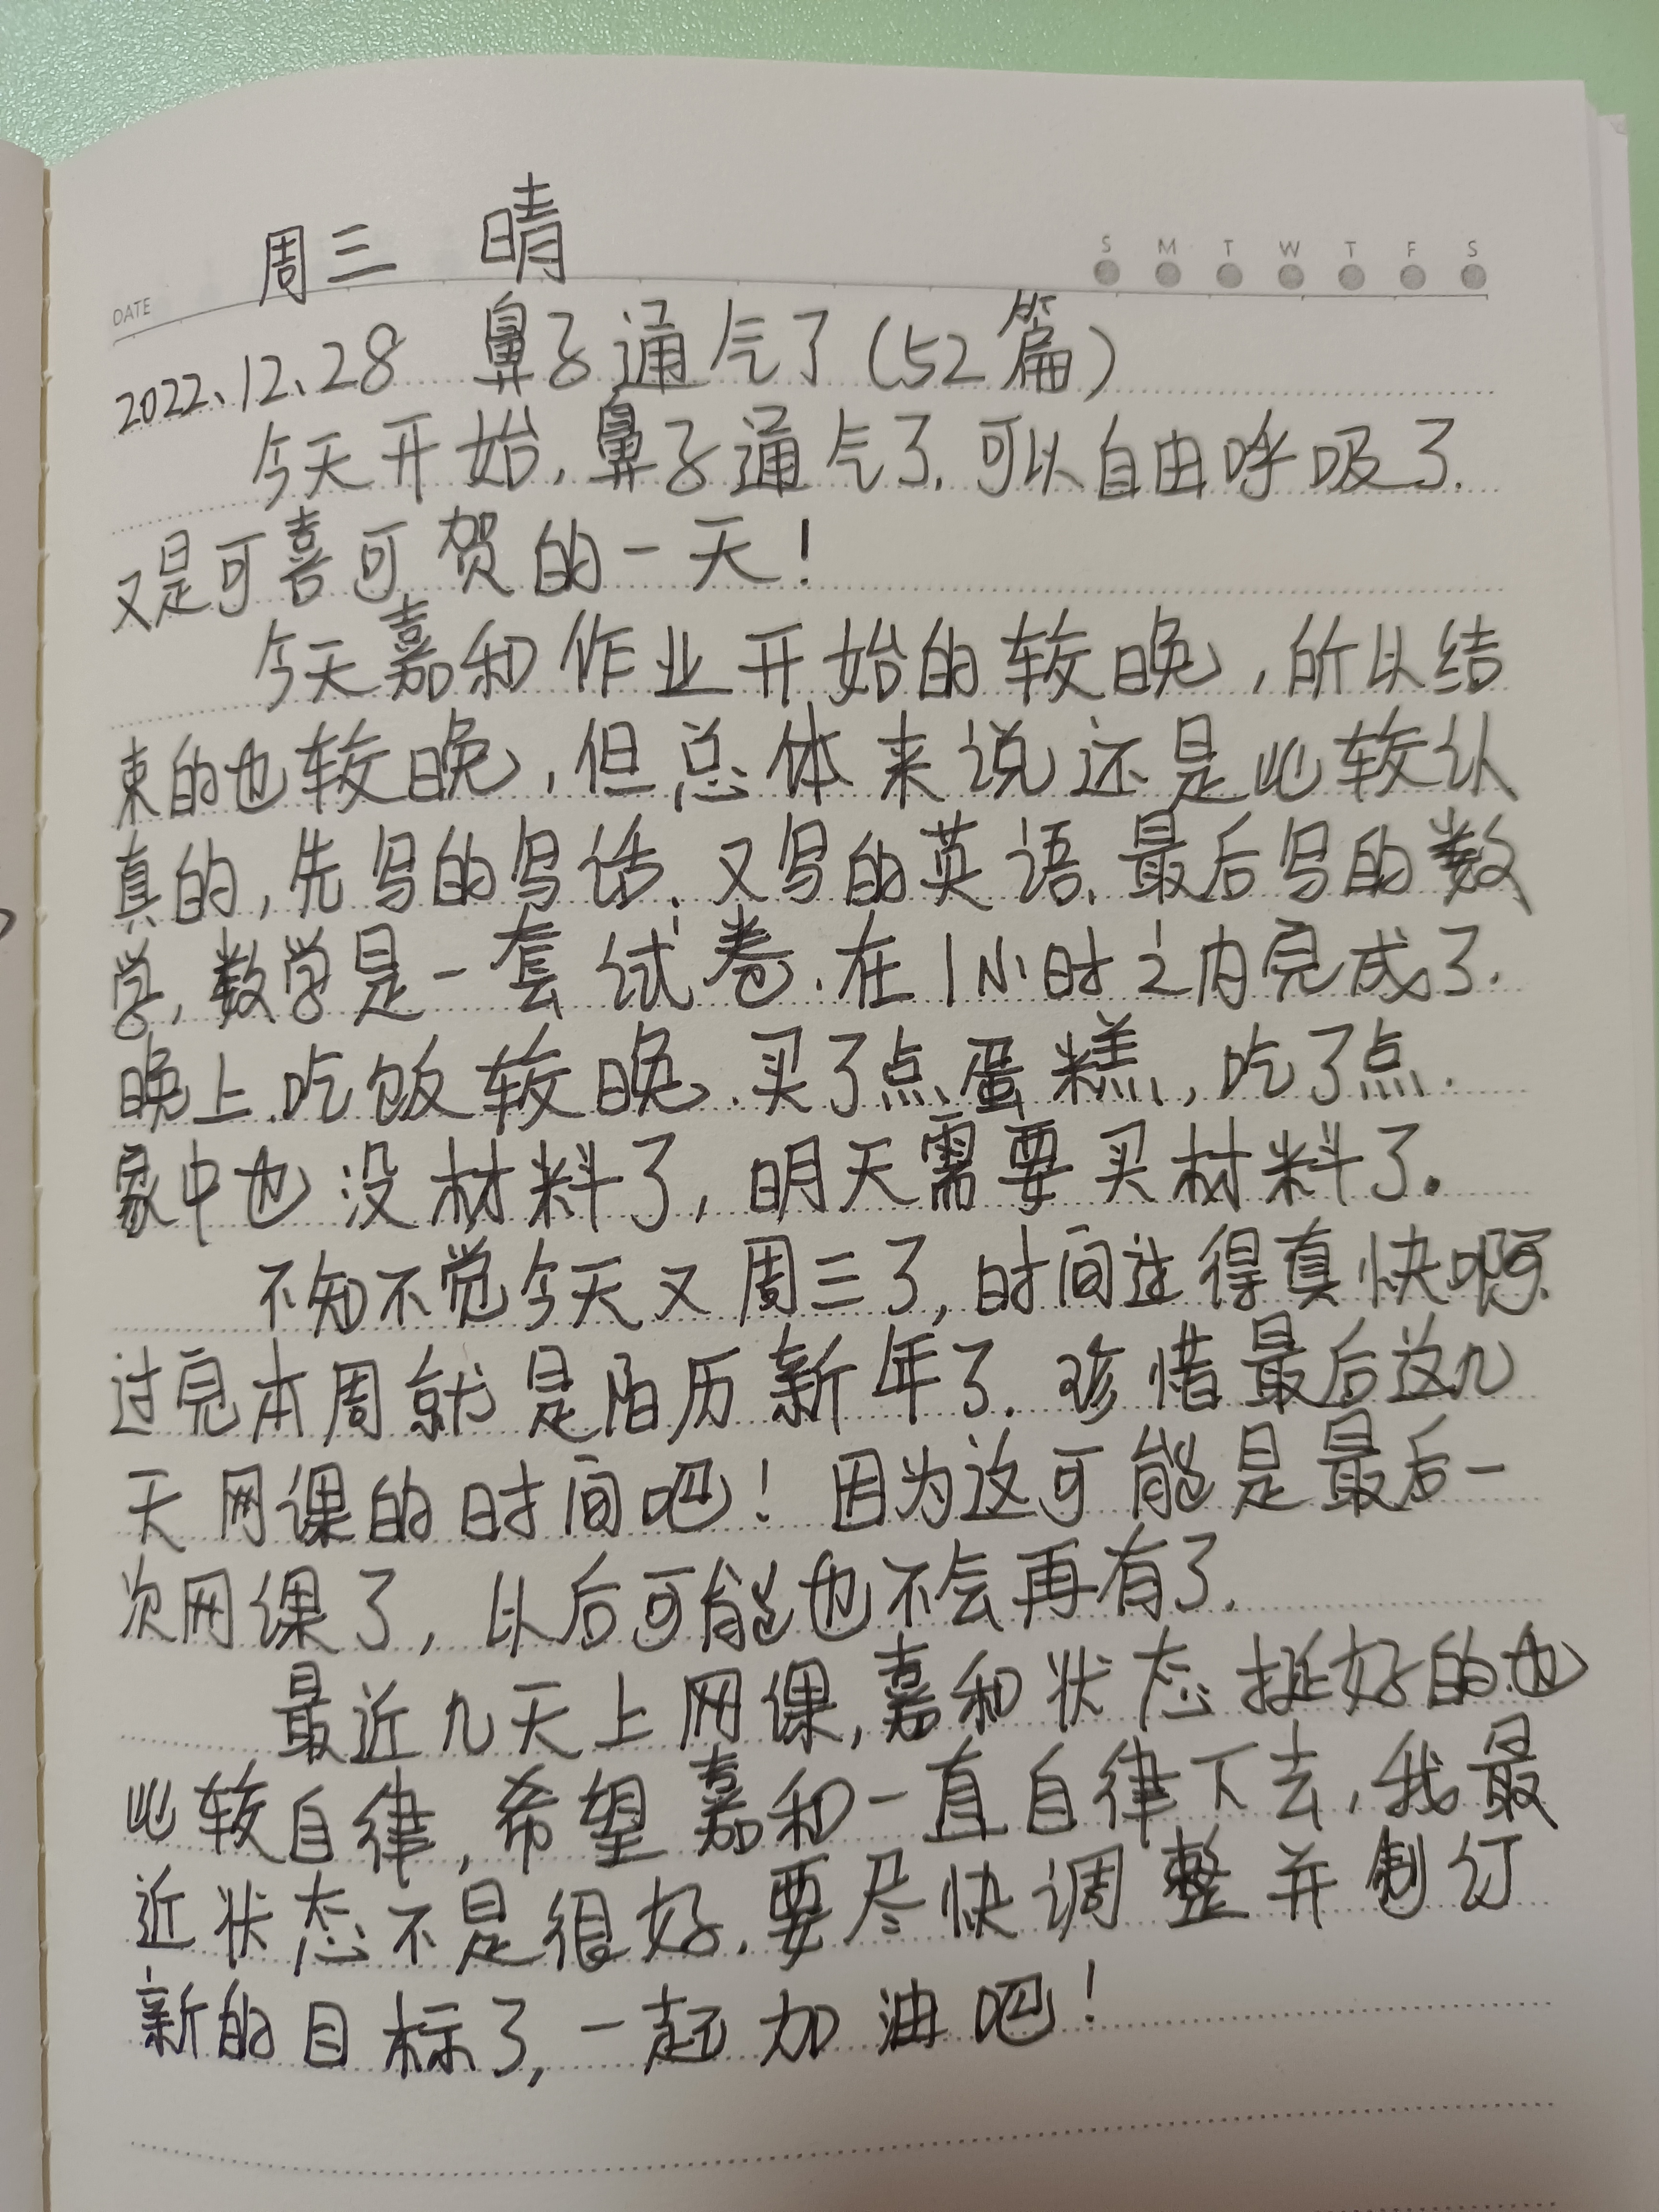 周三 晴
S M T W T F S
DATE
2022、12、28 鼻子通气了(52篇)
今天开始,鼻子通气了.可以自由呼吸了.
又是可喜可贺的一天!
今天嘉和作业开始的较晚,所以结
束的也较晚,但总体来说还是比较认
真的,先写的写话.又写的英语.最后写的数
学,数学是一套试卷.在1小时之内完成了.
晚上吃饭较晚.买了点蛋糕,吃了点.
家中也没材料了,明天需要买材料了.
不知不觉今天又周三了,时间过得真快啊.
过完本周就是阳历新年了.珍惜最后这几
天网课的时间吧!因为这可能是最后一
次网课了,以后可能也不会再有了.
最近几天上网课,嘉和状态挺好的.也
比较自律,希望嘉和一直自律下去,我最
近状态不是很好.要尽快调整并制订
新的目标了,一起加油吧!